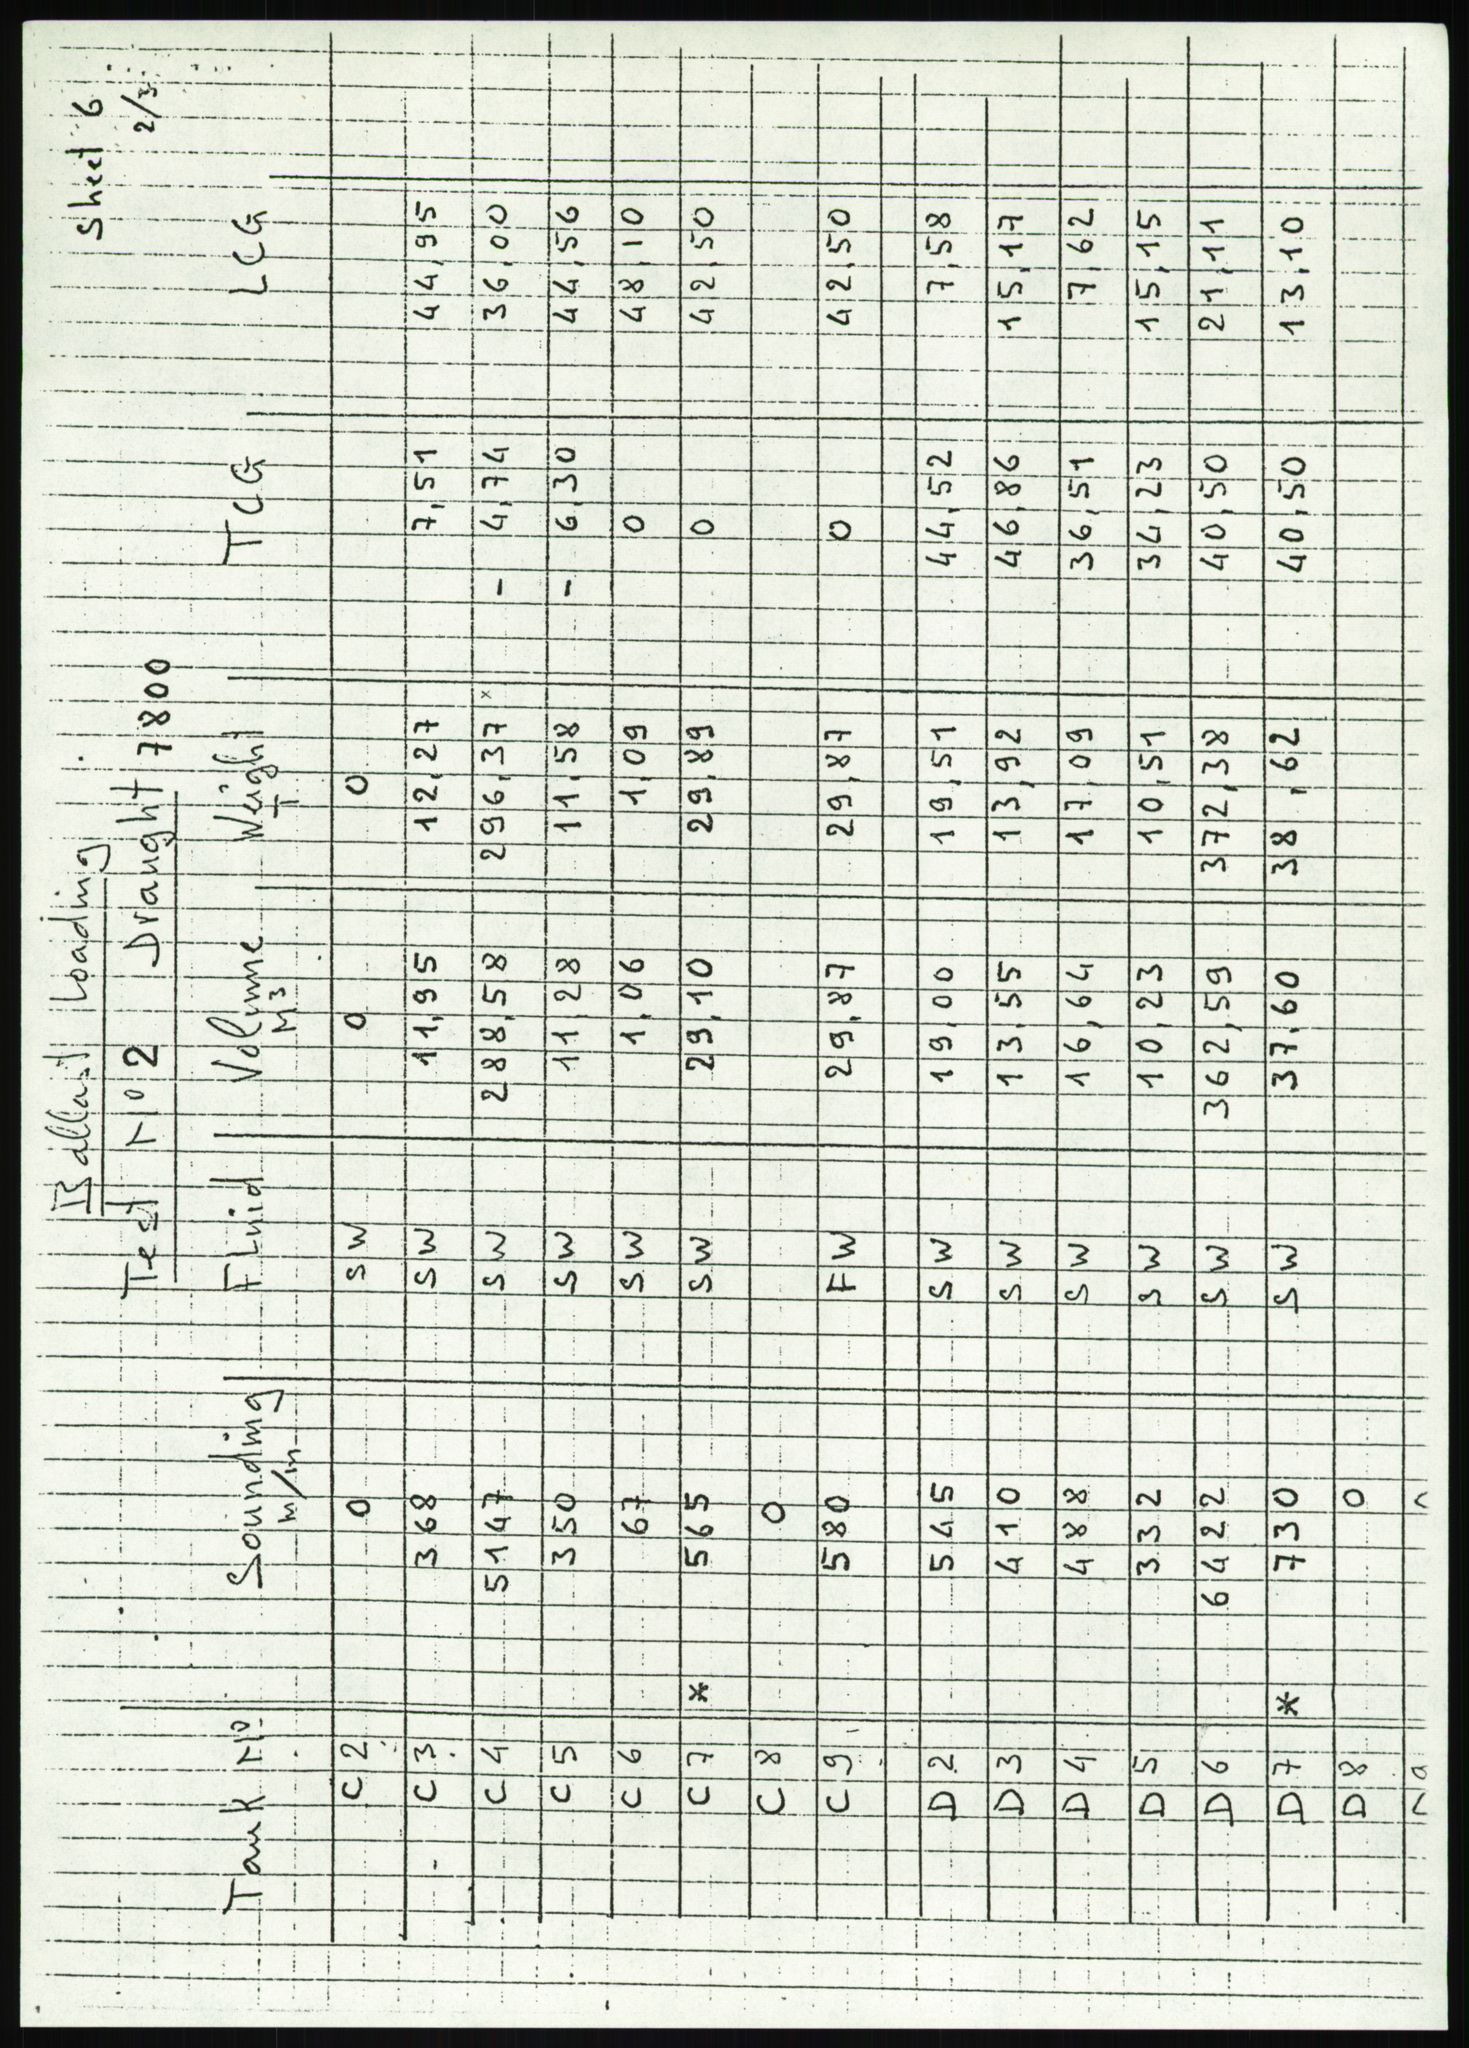 Sheet 6
2/3
Ballast Loading
Test No 2 Draught 7800
Tank No Sounding Fluid Volume Weight TCG LCG
m/m M3 T
C2 0 SW 0 0
C3 368 SW 11,95 12,27 7,51 44,95
C4 5147 SW 288,58 296,37 x - 4,74 36,00
C5 350 SW 11,28 11,58 - 6,30 44,56
C6 67 SW 1,06 1,09 0 48,10
C7 * 565 SW 29,10 29,89 0 42,50
C8 0
C9 580 FW 29,87 29,87 0 42,50
D2 545 SW 19,00 19,51 44,52 7,58
D3 410 SW 13,55 13,92 46,86 15,17
D4 488 SW 16,64 17,09 36,51 7,62
D5 332 SW 10,23 10,51 34,23 15,15
D6 6422 SW 362,59 372,38 40,50 21,11
D7 * 730 SW 37,60 38,62 40,50 13,10
D8 0